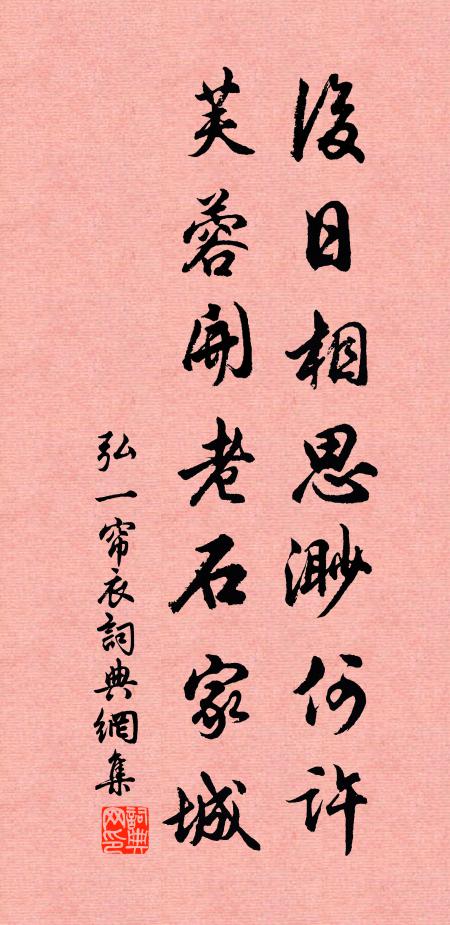 後日相思渺何許
芙蓉開老石家城
弘一帘衣詞典網集
詞典網印